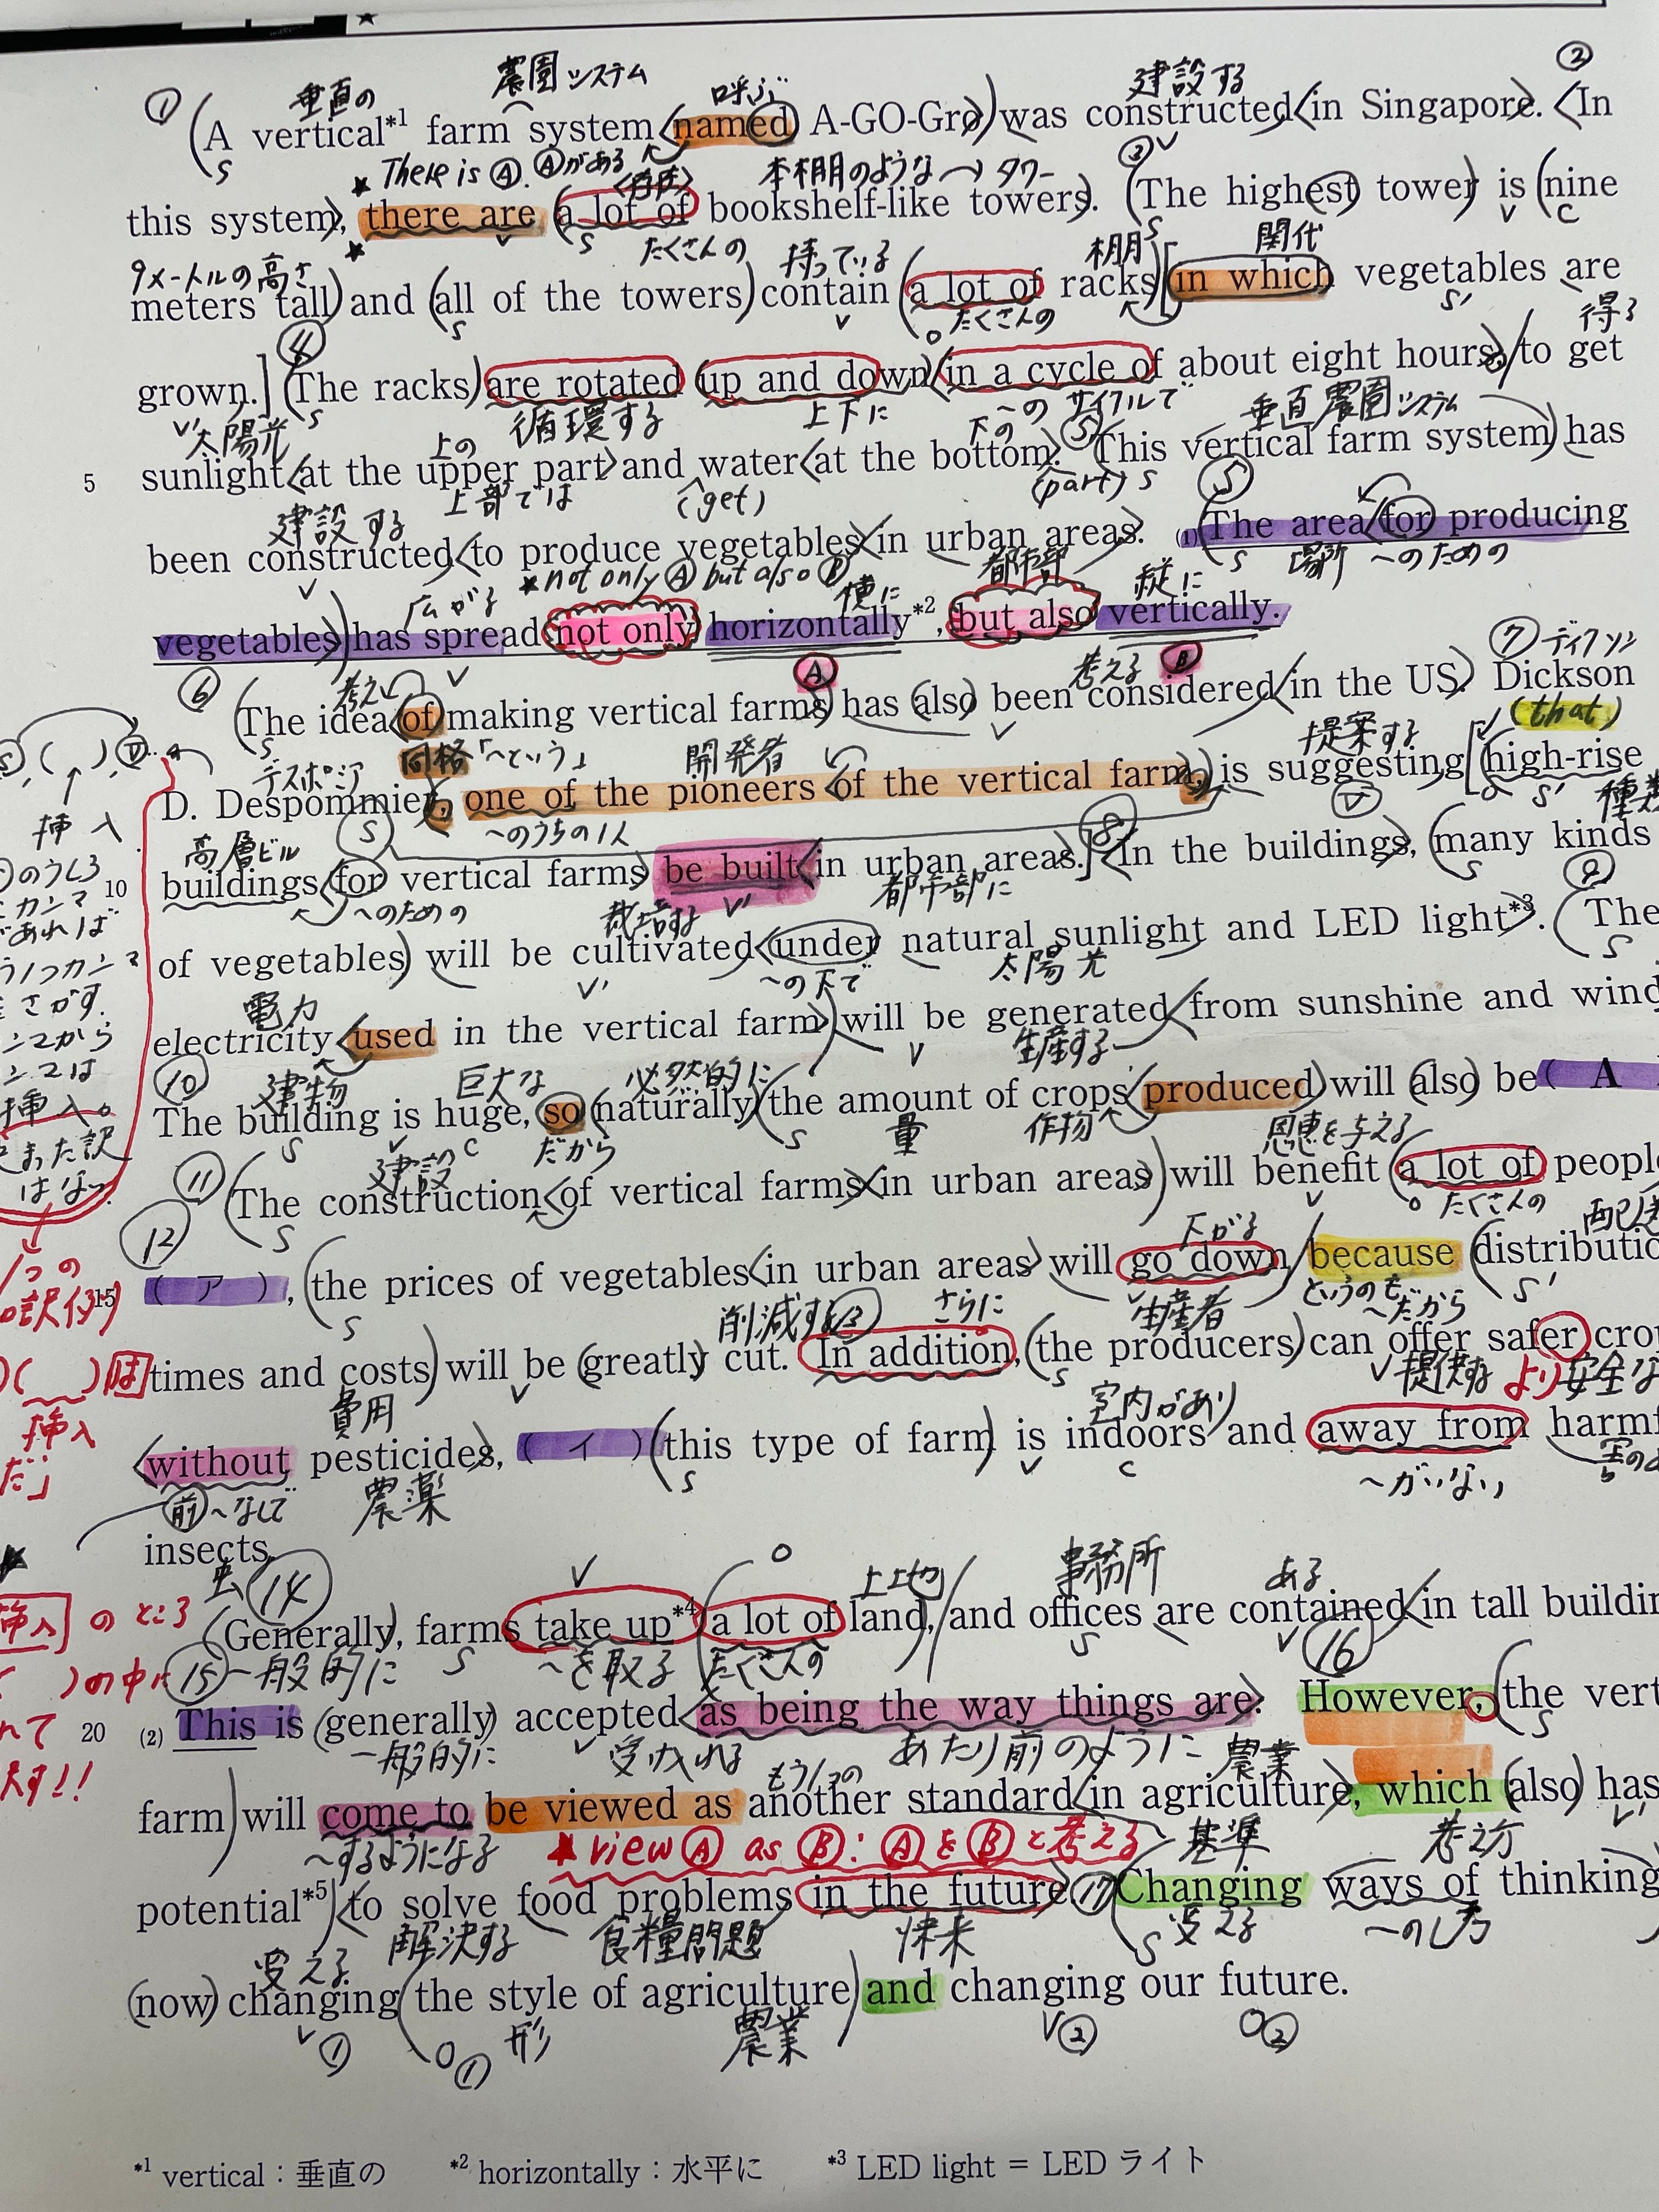 ① 垂直の 農園システム 呼ぶ 建設する ②
A vertical*1 farm system named A-GO-Gro was constructed in Singapore. In
★ There is Ⓐ. Ⓐがある 本棚のような → タワー ③
this system, there are a lot of bookshelf-like towers. The highest tower is nine
9メートルの高さ たくさんの 持っている 棚 関代
meters tall and all of the towers contain a lot of racks in which vegetables are
④ たくさんの 得る
grown. The racks are rotated up and down in a cycle of about eight hours, to get
太陽光 上の 循環する 上下に 下の 〜のサイクルで ⑤ 垂直農園システム
5 sunlight at the upper part and water at the bottom. This vertical farm system has
建設する 上部では (get) (part) S ⑤
been constructed to produce vegetables in urban areas. (1) The area for producing
広がる ★not only Ⓐ but also Ⓑ 都市部 縦に 場所 〜のための
vegetables has spread not only horizontally*2, but also vertically.
⑥ 考え Ⓐ 考える Ⓑ ⑦ ディクソン
The idea of making vertical farms has also been considered in the US. Dickson
デスポミア 同格「〜という」 開発者 提案する (that)
D. Despommier, one of the pioneers of the vertical farm, is suggesting high-rise
挿入 高層ビル 〜のうちの1人 ⑧
10 buildings for vertical farms be built in urban areas. In the buildings, many kinds
〜のための 栽培する 都市部に ⑨
of vegetables will be cultivated under natural sunlight and LED light*3. The
電力 〜の下で 太陽光
electricity used in the vertical farm will be generated from sunshine and wind
⑩ 建物 巨大な 必然的に 生産する
The building is huge, so naturally the amount of crops produced will also be ( A
⑪ 建設 だから 量 作物 恩恵を与える
The construction of vertical farms in urban areas will benefit a lot of people
⑫ 下がる たくさんの
15 ( ア ), the prices of vegetables in urban areas will go down because distributio
削減する ⑬ さらに 生産者 というのも〜だから
times and costs will be greatly cut. In addition, the producers can offer safer crop
費用 室内があり 提供する より安全な
without pesticides, ( イ ) this type of farm is indoors and away from harmf
前〜なしで 農薬 〜がいない
insects.
虫 ⑭ 土地 事務所 ある
Generally, farms take up*4 a lot of land, and offices are contained in tall buildin
⑮ 一般的に 〜を取る たくさんの ⑯
20 (2) This is generally accepted as being the way things are. However, the vert
一般的に 受け入れる あたり前のように もう1つの 農業
farm will come to be viewed as another standard in agriculture, which also has
〜するようになる ★view Ⓐ as Ⓑ : ⒶをⒷと考える 基準 考え方
potential*5 to solve food problems in the future. ⑰ Changing ways of thinking
変える 解決する 食糧問題 将来 変える 〜のし方
now changing the style of agriculture and changing our future.
V① O① 形 農業 V② O②
*1 vertical：垂直の *2 horizontally：水平に *3 LED light = LED ライト